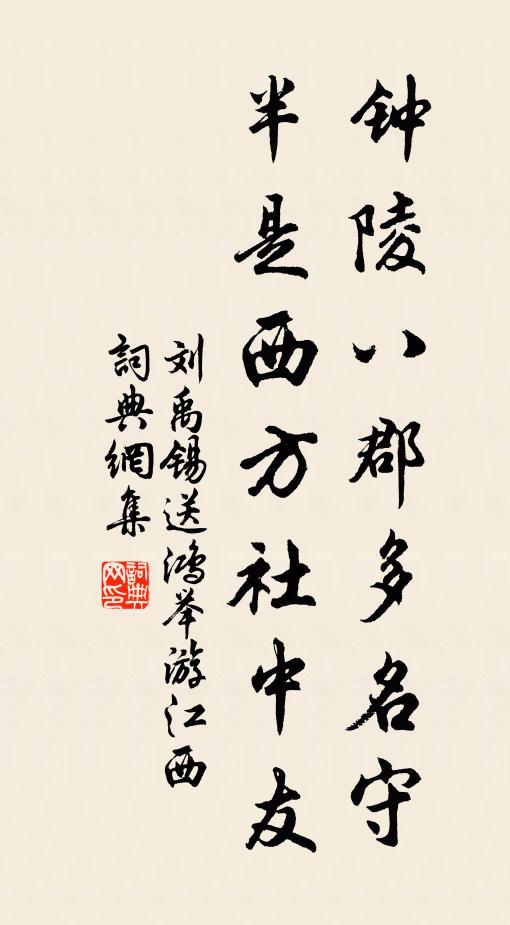 钟陵八郡多名守
半是西方社中友
刘禹锡送鸿举游江西
詞典網集
詞典网印